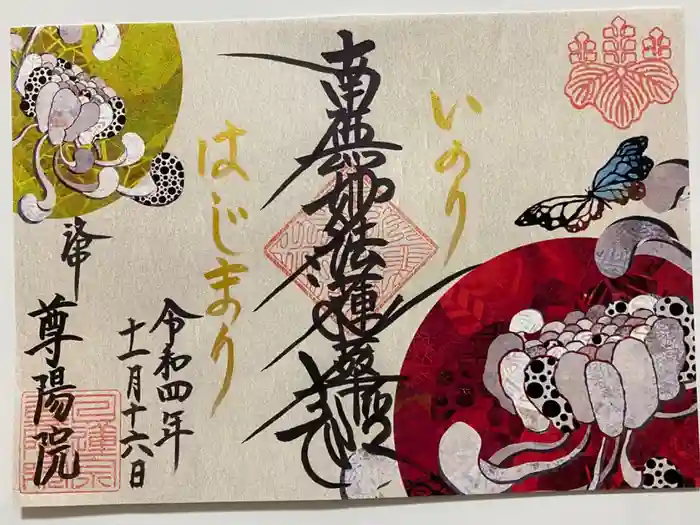 いのり
南無妙法蓮華経
はじまり
令和四年
十一月十六日
尊陽院